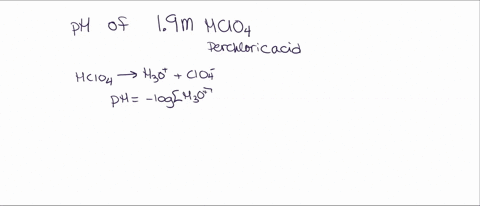 pH of 1.9m HClO4
Perchloric acid
HClO4 → H3O+ + ClO4-
pH = -log[H3O+]